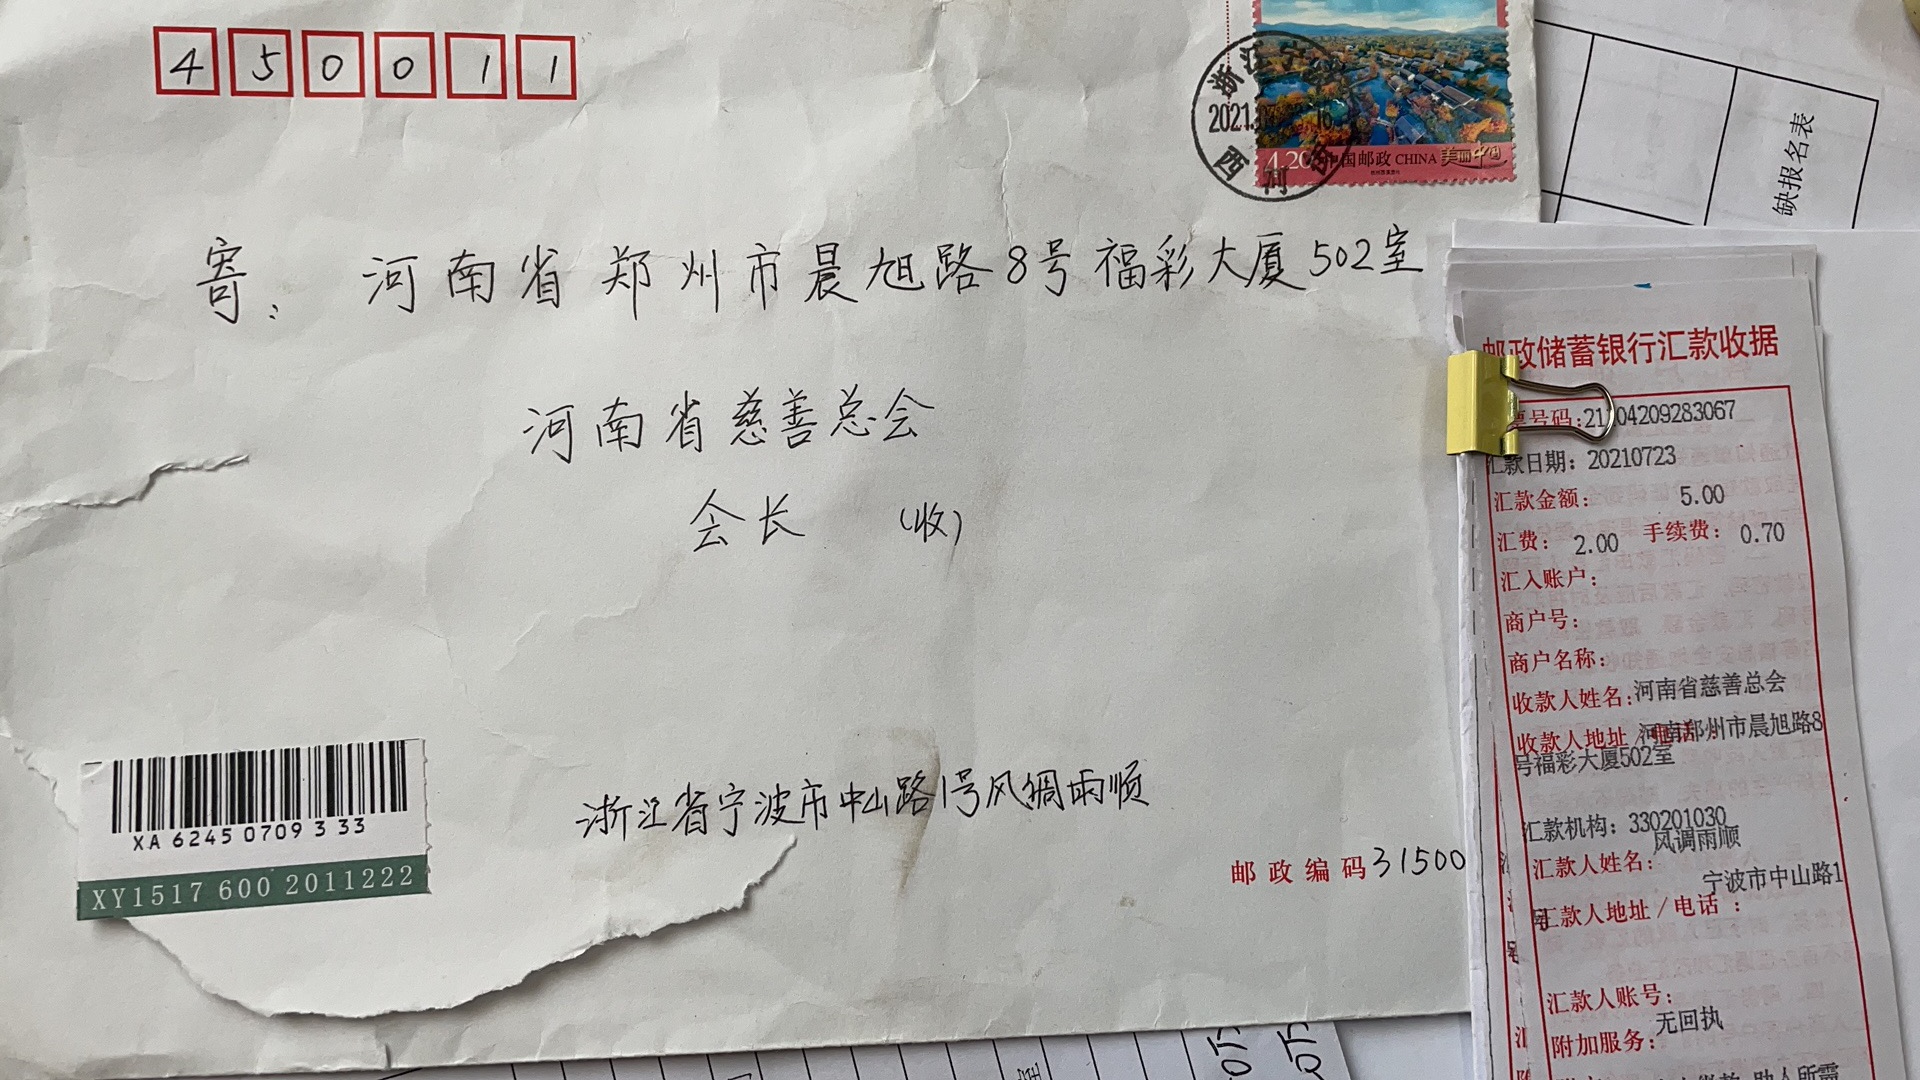 450011
浙江宁
2021.
西河
4.20 中国邮政 CHINA 美丽中国
寄: 河南省郑州市晨旭路8号福彩大厦502室
河南省慈善总会
会长 (收)
XA 6245 0709 3 33
XY1517 600 2011222
浙江省宁波市中山路1号风调雨顺
邮政编码31500
缺报名表
邮政储蓄银行汇款收据
票号码:21104209283067
汇款日期: 20210723
汇款金额: 5.00
汇费: 2.00 手续费: 0.70
汇入账户:
商户号:
商户名称:
收款人姓名:河南省慈善总会
收款人地址/电话: 河南郑州市晨旭路8
号福彩大厦502室
汇款机构: 330201030
汇款人姓名: 风调雨顺
汇款人地址/电话: 宁波市中山路1
号
汇款人账号:
附加服务: 无回执